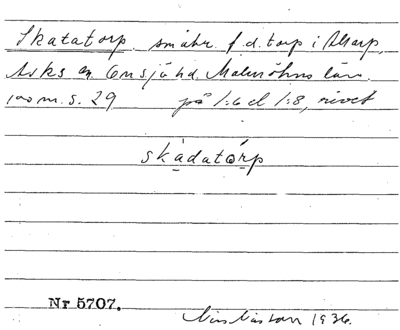 Skatatorp. småbr. f.d. torp i Allarp,
Asks sn Onsjö hd. Malmöhus län.
100 m. s. 29 på 1:6 el 1:8, rivet
skadatórp
Nr 5707.
1936.